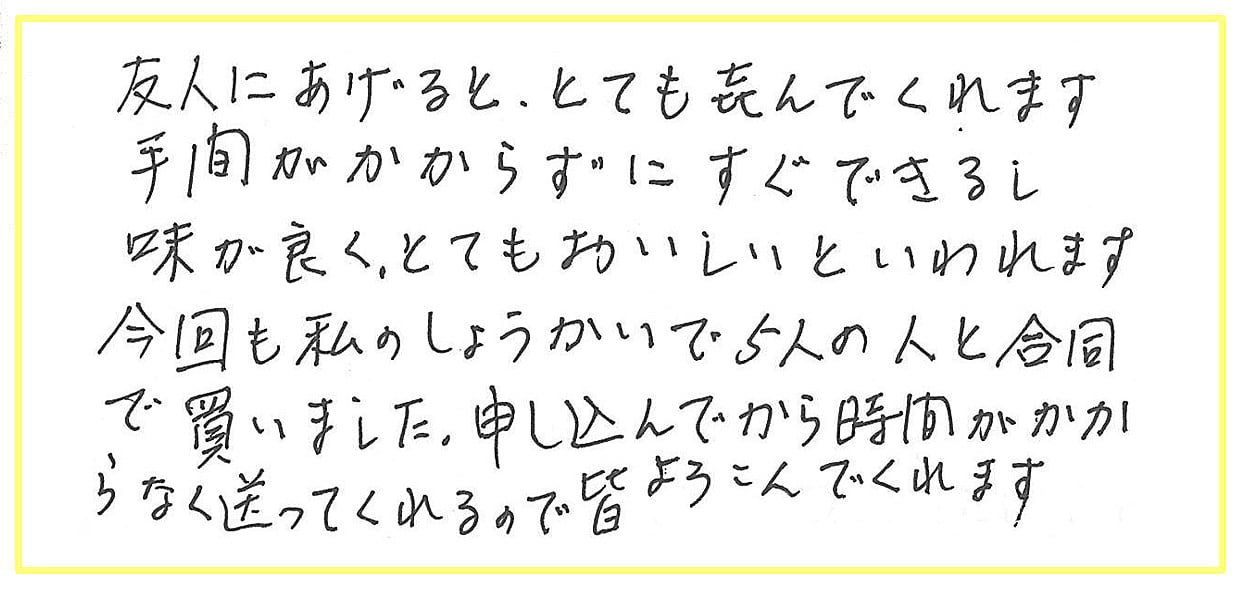 友人にあげると、とても喜んでくれます
手間がかからずにすぐできるし
味が良く、とてもおいしいといわれます
今回も私のしょうかいで5人の人と合同
で買いました。申し込んでから時間がかか
らなく送ってくれるので皆よろこんでくれます